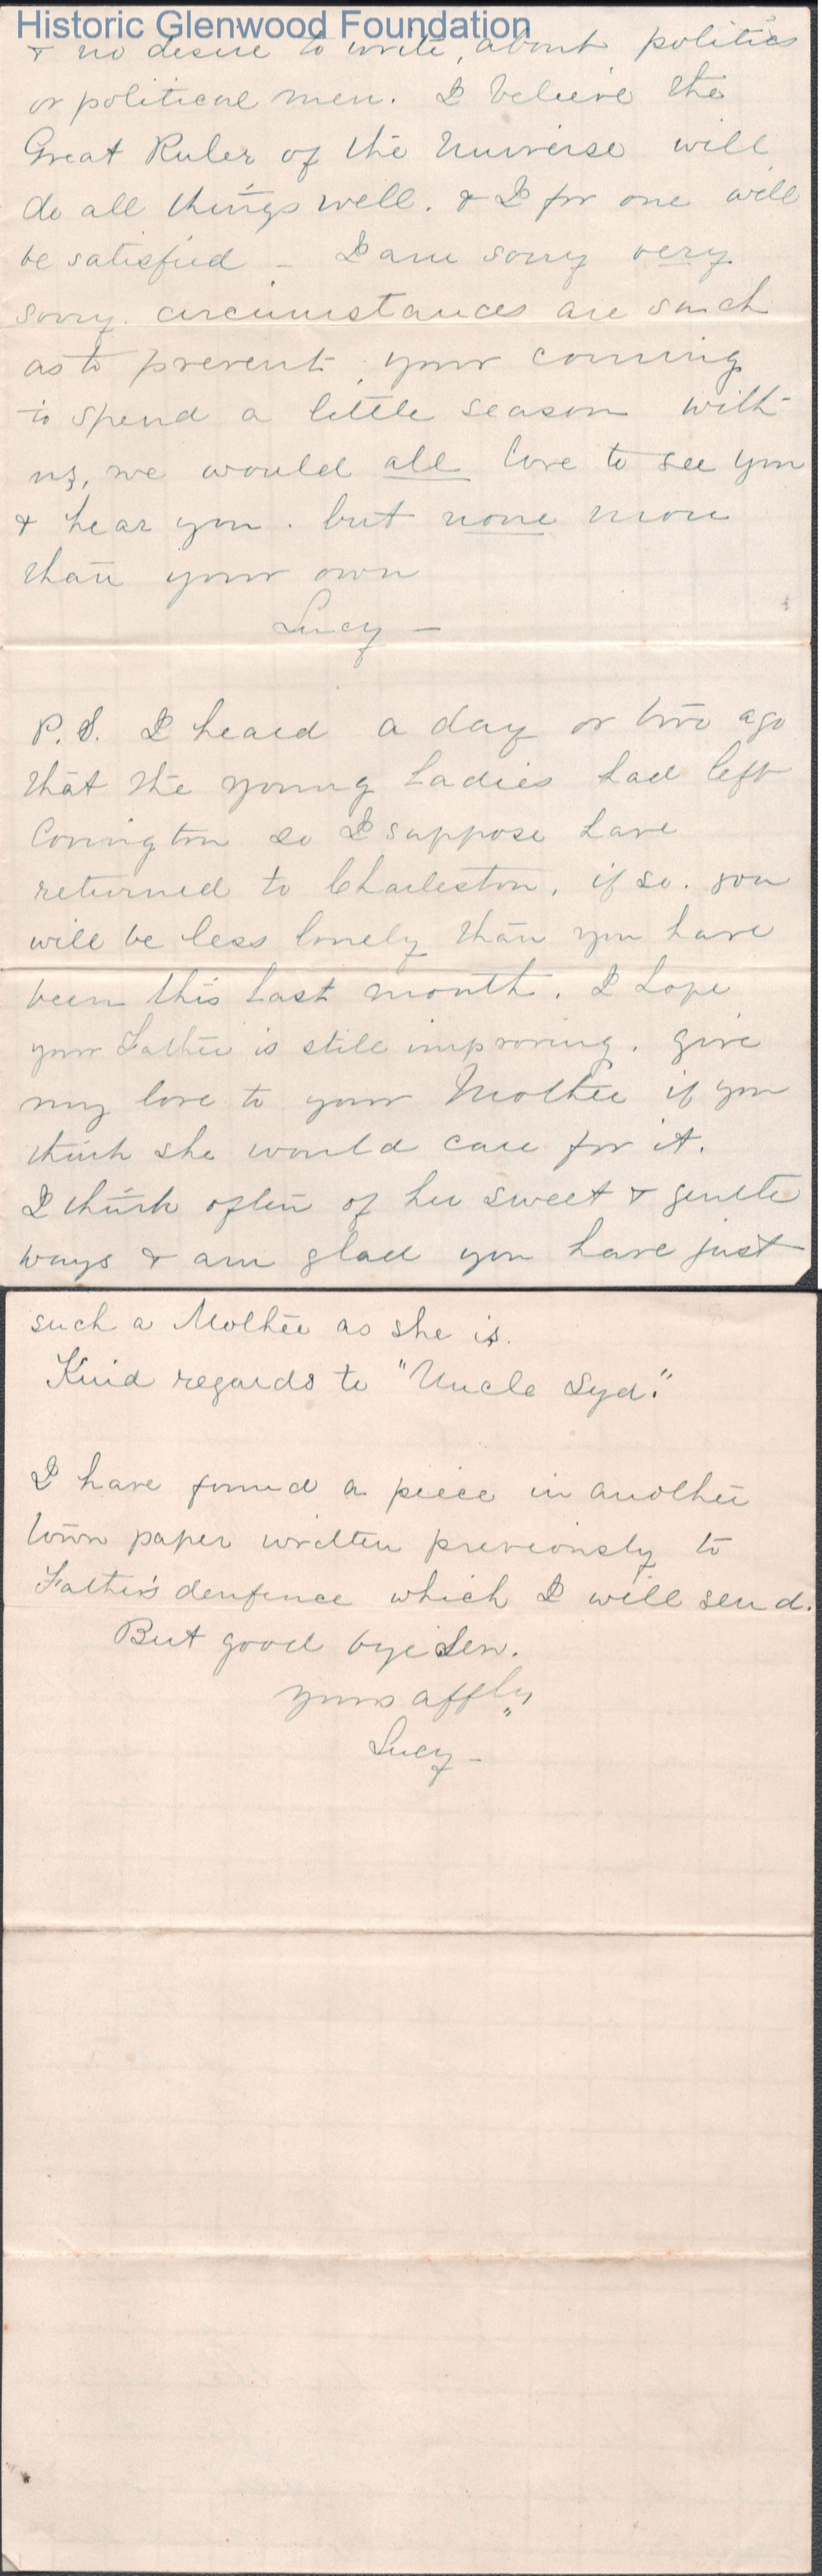 Historic Glenwood Foundation
& no desire to write, about politics
or political men. I believe the
Great Ruler of the Universe will
do all things well. & I for one will
be satisfied – I am sorry very
sorry. circumstances are such
as to prevent your coming
to spend a little season with
us, we would all love to see you
& hear you. but none more
than your own
Lucy –
P.S. I heard a day or two ago
that the young Ladies had left
Covington so I suppose have
returned to Charleston, if so. you
will be less lonely than you have
been this last month. I hope
your Father is still improving. give
my love to your Mother if you
think she would care for it.
I think often of her sweet & gentle
ways & am glad you have just
such a Mother as she is.
Kind regards to "Uncle Syd."
I have found a piece in another
town paper written previously to
Father's denfence which I will send.
But good bye Len.
yours affly
Lucy –